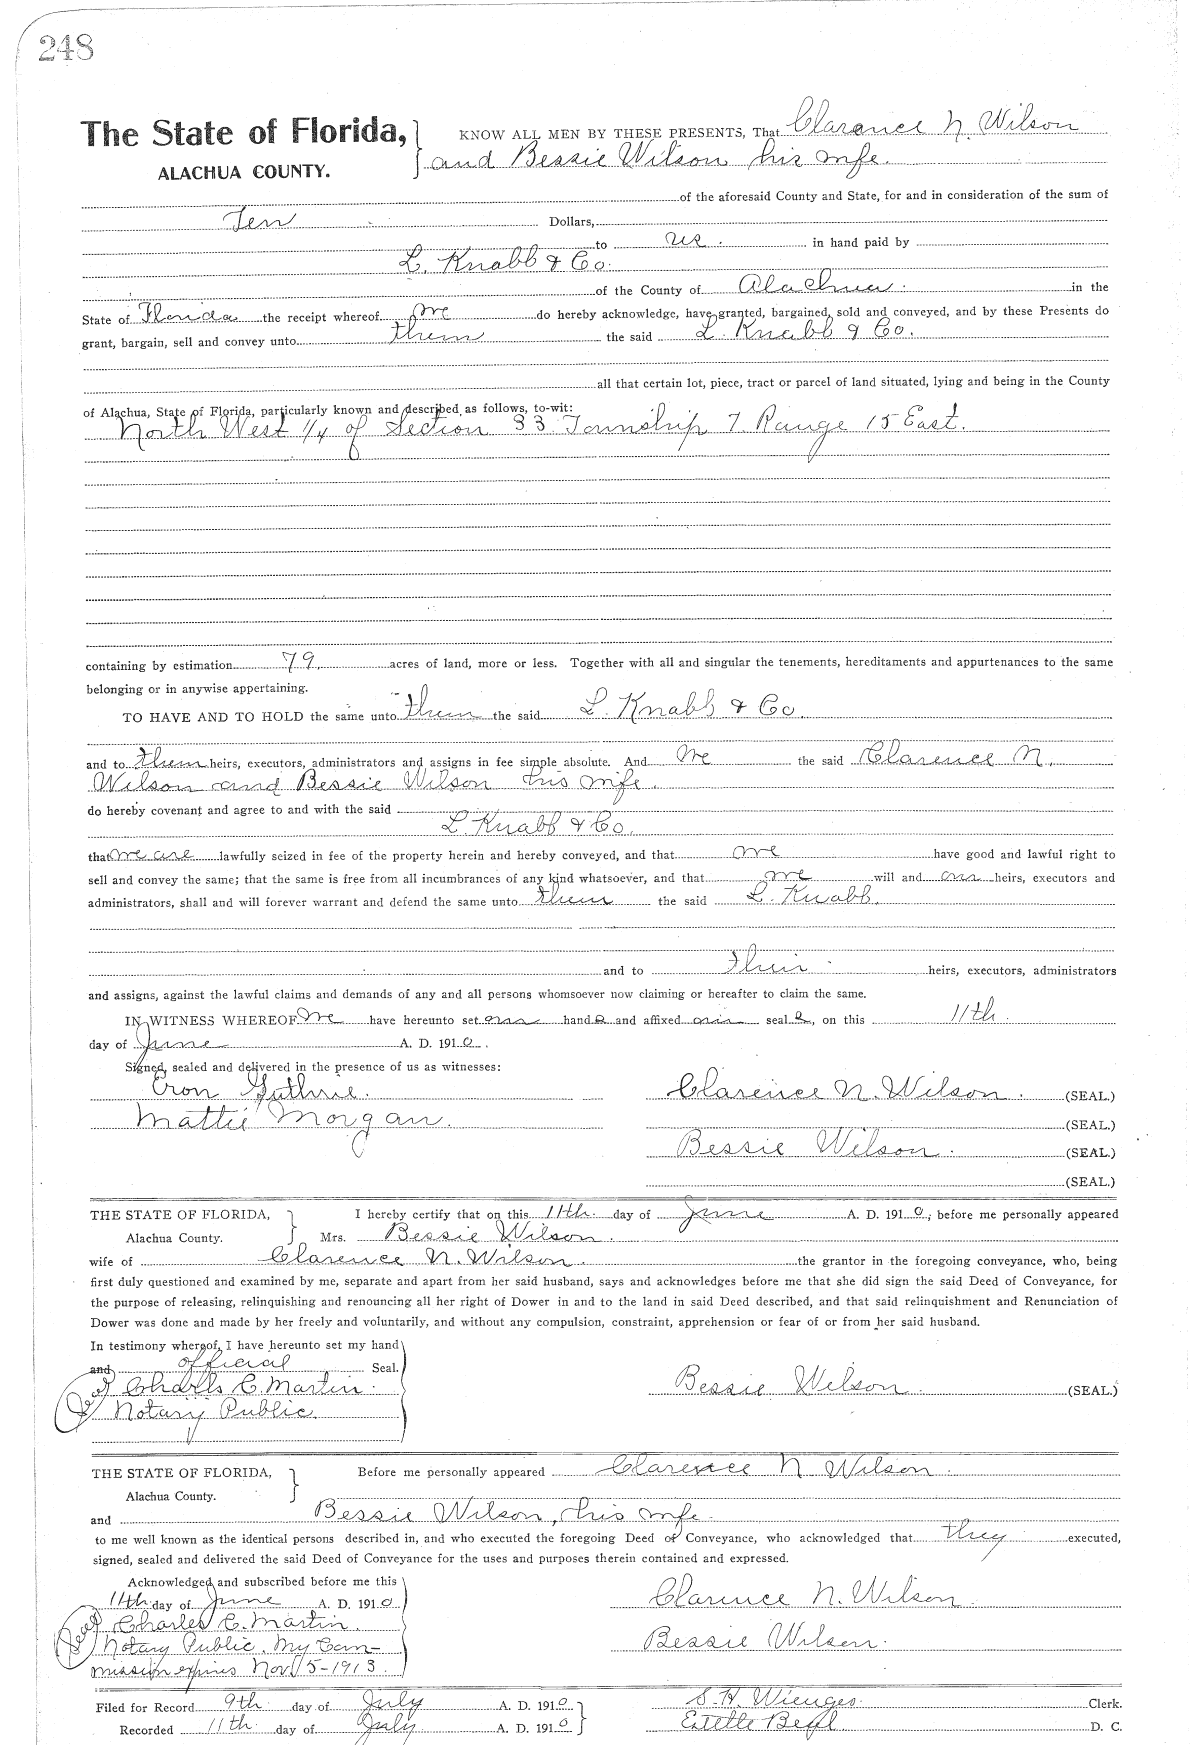 248
The State of Florida, KNOW ALL MEN BY THESE PRESENTS, That Clarence N. Wilson
ALACHUA COUNTY. and Bessie Wilson his wife.
of the aforesaid County and State, for and in consideration of the sum of
Ten Dollars,
to us in hand paid by
L. Knabb & Co.
of the County of Alachua in the
State of Florida the receipt whereof we do hereby acknowledge, have granted, bargained, sold and conveyed, and by these Presents do
grant, bargain, sell and convey unto them the said L. Knabb & Co.
all that certain lot, piece, tract or parcel of land situated, lying and being in the County
of Alachua, State of Florida, particularly known and described as follows, to-wit:
North West 1/4 of Section 33 Township 7 Range 15 East.
containing by estimation 79 acres of land, more or less. Together with all and singular the tenements, hereditaments and appurtenances to the same
belonging or in anywise appertaining.
TO HAVE AND TO HOLD the same unto them the said L. Knabb & Co
and to them heirs, executors, administrators and assigns in fee simple absolute. And we the said Clarence N.
Wilson and Bessie Wilson his wife.
do hereby covenant and agree to and with the said
L Knabb & Co.
that we are lawfully seized in fee of the property herein and hereby conveyed, and that we have good and lawful right to
sell and convey the same; that the same is free from all incumbrances of any kind whatsoever, and that we will and our heirs, executors and
administrators, shall and will forever warrant and defend the same unto them the said L. Knabb.
and to their heirs, executors, administrators
and assigns, against the lawful claims and demands of any and all persons whomsoever now claiming or hereafter to claim the same.
IN WITNESS WHEREOF we have hereunto set our hands and affixed our seals, on this 11th.
day of June A. D. 1910.
Signed, sealed and delivered in the presence of us as witnesses:
Eron Guthrie. Clarence N. Wilson. (SEAL.)
Mattie Morgan. (SEAL.)
Bessie Wilson. (SEAL.)
(SEAL.)
THE STATE OF FLORIDA, I hereby certify that on this 11th. day of June A. D. 1910, before me personally appeared
Alachua County. Mrs. Bessie Wilson.
wife of Clarence N. Wilson. the grantor in the foregoing conveyance, who, being
first duly questioned and examined by me, separate and apart from her said husband, says and acknowledges before me that she did sign the said Deed of Conveyance, for
the purpose of releasing, relinquishing and renouncing all her right of Dower in and to the land in said Deed described, and that said relinquishment and Renunciation of
Dower was done and made by her freely and voluntarily, and without any compulsion, constraint, apprehension or fear of or from her said husband.
In testimony whereof, I have hereunto set my hand
and official Seal.
Charles C. Martin. Bessie Wilson. (SEAL.)
Notary Public.
THE STATE OF FLORIDA, Before me personally appeared Clarence N Wilson.
Alachua County.
and Bessie Wilson, his wife.
to me well known as the identical persons described in, and who executed the foregoing Deed of Conveyance, who acknowledged that they executed,
signed, sealed and delivered the said Deed of Conveyance for the uses and purposes therein contained and expressed.
Acknowledged and subscribed before me this
11th. day of June A. D. 1910 Clarence N. Wilson
Seal Charles C. Martin.
Notary Public. My Com- Bessie Wilson.
mission expires Nov. 15-1913.
Filed for Record 9th day of July A. D. 1910 S. H. Wienges. Clerk.
Recorded 11th. day of July A. D. 1910 Estelle D. C.